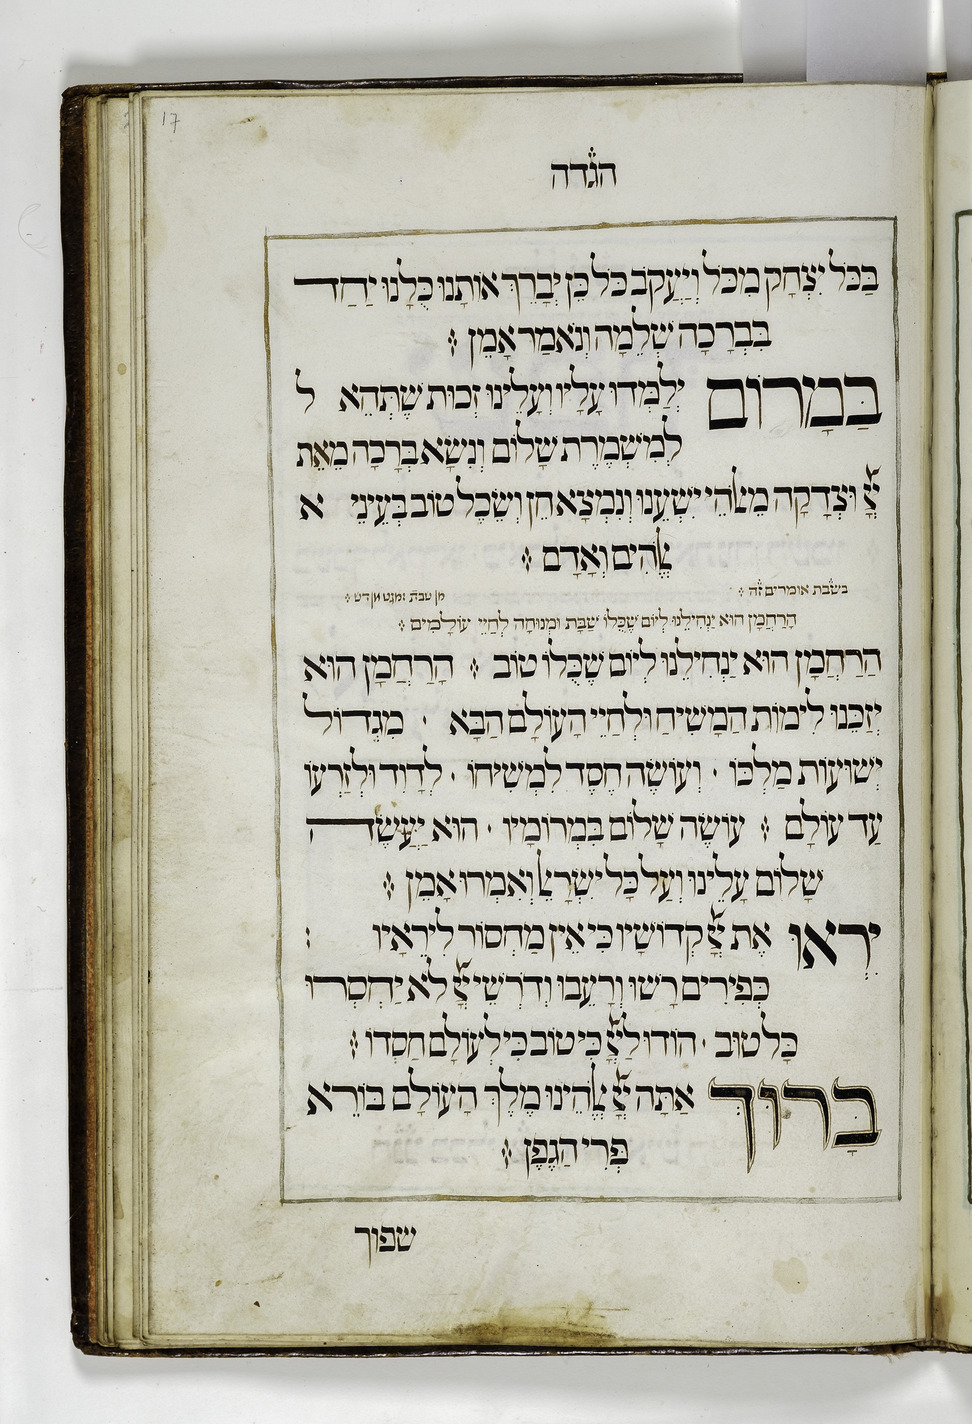 17
הגדה
בַּכֹּל יִצְחָק מִכֹּל וְיַעֲקֹב כֹּל כֵּן יְבָרֵךְ אוֹתָנוּ כֻּלָּנוּ יַחַד
בִּבְרָכָה שְׁלֵמָה וְנֹאמַר אָמֵן
בַּמָּרוֹם יְלַמְּדוּ עָלָיו וְעָלֵינוּ זְכוּת שֶׁתְּהֵא ל
לְמִשְׁמֶרֶת שָׁלוֹם וְנִשָּׂא בְרָכָה מֵאֵת
יְיָ וּצְדָקָה מֵאלֹהֵי יִשְׁעֵנוּ וְנִמְצָא חֵן וְשֵׂכֶל טוֹב בְּעֵינֵי א
אֱלֹהִים וְאָדָם
בשבת אומרים זה
הָרַחֲמָן הוּא יַנְחִילֵנוּ לְיוֹם שֶׁכֻּלּוֹ שַׁבָּת וּמְנוּחָה לְחַיֵּי עוֹלָמִים
הָרַחֲמָן הוּא יַנְחִילֵנוּ לְיוֹם שֶׁכֻּלּוֹ טוֹב הָרַחֲמָן הוּא
יְזַכֵּנוּ לִימוֹת הַמָּשִׁיחַ וּלְחַיֵּי הָעוֹלָם הַבָּא · מִגְדּוֹל
יְשׁוּעוֹת מַלְכּוֹ · וְעוֹשֶׂה חֶסֶד לִמְשִׁיחוֹ · לְדָוִד וּלְזַרְעוֹ
עַד עוֹלָם עוֹשֶׂה שָׁלוֹם בִּמְרוֹמָיו · הוּא יַעֲשֶׂה
שָׁלוֹם עָלֵינוּ וְעַל כָּל יִשְׂרָאֵל וְאִמְרוּ אָמֵן
יִרְאוּ אֶת יְיָ קְדוֹשָׁיו כִּי אֵין מַחְסוֹר לִירֵאָיו :
כְּפִירִים רָשׁוּ וְרָעֵבוּ וְדֹרְשֵׁי יְיָ לֹא יַחְסְרוּ
כָּל טוֹב · הוֹדוּ לַיְיָ כִּי טוֹב כִּי לְעוֹלָם חַסְדּוֹ
בָּרוּךְ אַתָּה יְיָ אֱלֹהֵינוּ מֶלֶךְ הָעוֹלָם בּוֹרֵא
פְּרִי הַגֶּפֶן
שפוך